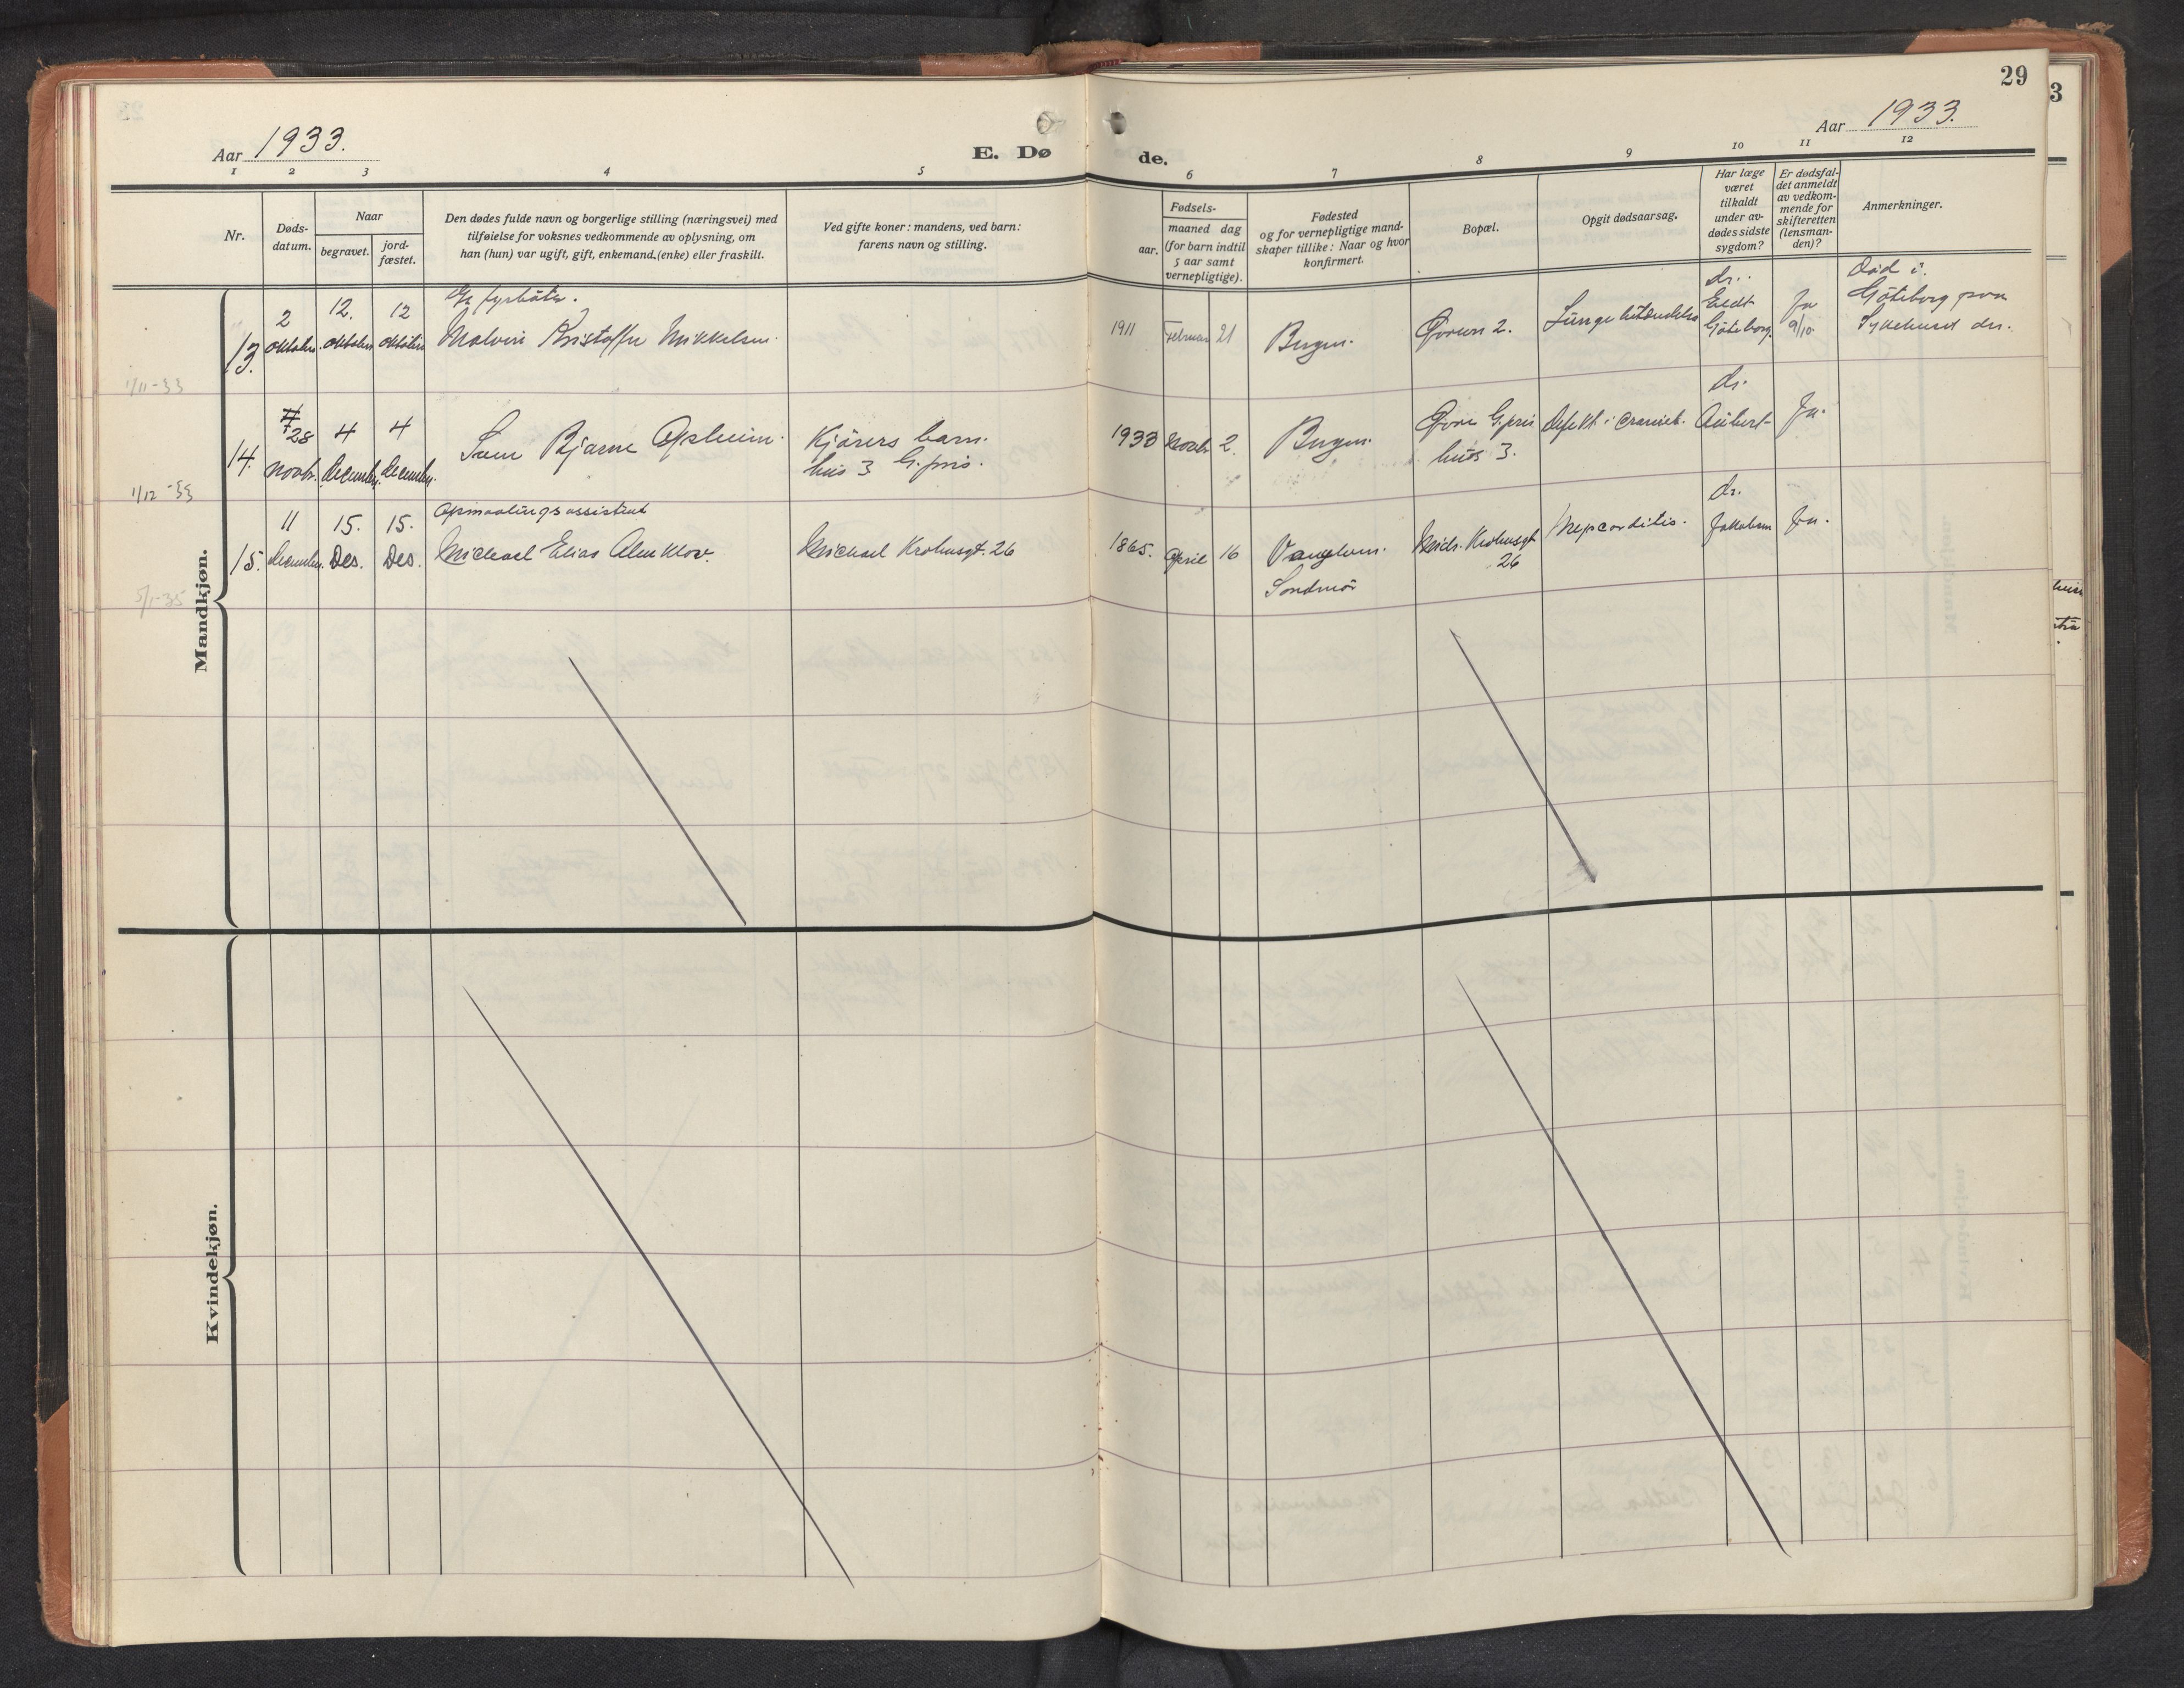 29
3
Aar 1933.
Aar 1933.
E. Dø
de.
1 2 3 4 5 6 7 8 9 10 11 12
Nr.
Døds-
datum.
Naar
begravet.
jord-
fæstet.
Den dødes fulde navn og borgerlige stilling (næringsvei) med
tilføielse for voksnes vedkommende av oplysning, om
han (hun) var ugift, gift, enkemand (enke) eller fraskilt.
Ved gifte koner: mandens, ved barn:
farens navn og stilling.
Fødsels-
aar.
maaned dag
(for barn indtil
5 aar samt
vernepligtige).
Fødested
og for vernepligtige mand-
skaper tillike: Naar og hvor
konfirmert.
Bopæl.
Opgit dødsaarsag.
Har læge
været
tilkaldt
under av-
dødes sidste
sygdom?
Er dødsfal-
det anmeldt
av vedkom-
mende for
skifteretten
(lensman-
den)?
Anmerkninger.
Mandkjøn.
13.
2
oktober
12.
oktober
12
oktober
fyrbøter.
Kristoffer Mikkelsen.
1911
Februar
21
Bergen.
2.
Lungebetændelse
dr.
Göteborg.
Ja
9/10.
Död i
Göteborg paa
Sykehuset der.
1/11-33
14.
28
novbr.
4
december.
4
december.
Bjarne Opheim.
Kjörers barn.
hus 3 G. pris.
1933
Novbr
2.
Bergen.
G. pris
hus 3.
Defekt i craniet.
dr.
Aubert
Ja.
1/12-33
15.
11
december.
15.
Des.
15.
Des.
Opmaalingsassistent
Michael Elias Almklov.
Michael Krohnsgt. 26
1865.
April
16
Vanylven.
Søndmör
Mich. Krohnsgt
26
dr.
Jakobsen
Ja.
5/1-35
Kvindekjøn.